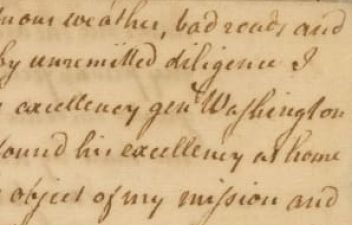 our weather, bad roads and
by unremitted diligence I
excellency genl Washington
found his excellency at home
object of my mission and